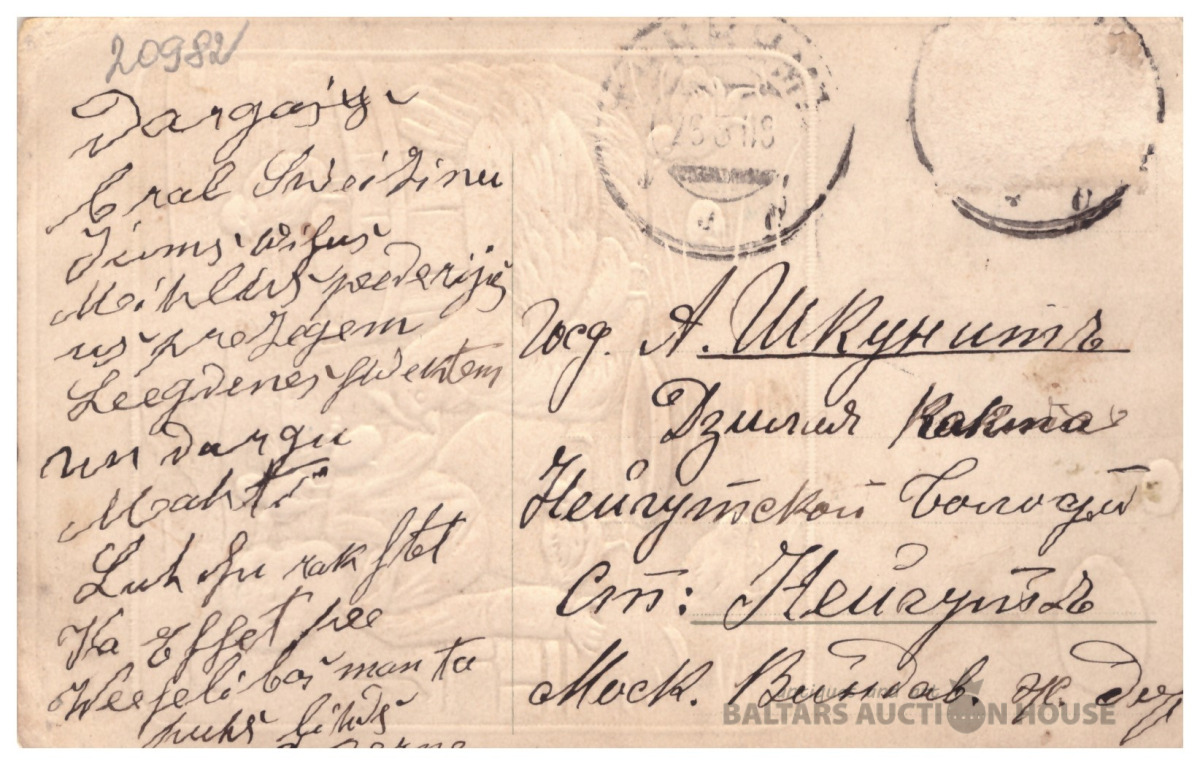 20982
Dargais
bral Sweizinu
Jums wisus
Mihlus peederigs
us preezigem
Leegdenes swektem
un dargu
Mahti
Luhdsu rakstet
Ka Esset pee
Weeselibas man ta
puhs lihds
Госп. А. Шкунитъ
Дзилля Какта
Нейгутской Волости
Ст: Нейгутъ
Моск. Виндав. ж. дор
BALTARS AUCTION HOUSE